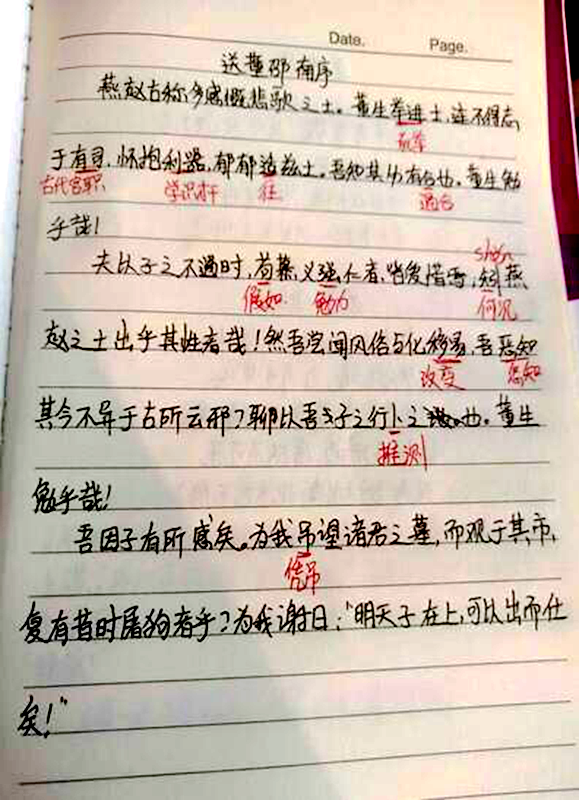 Date. Page.
送董邵南序
燕赵古称多感慨悲歌之士。董生举进士,连不得志
于有司,怀抱利器,郁郁适兹土。吾知其必有合也。董生勉
古代官职 学识才干 往 适合
乎哉!
shěn
夫以子之不遇时,苟慕义强仁者,皆爱惜焉,矧燕
假如 勉力 何况
赵之士出乎其性者哉!然吾尝闻风俗与化移易,吾恶知
改变 怎知
其今不异于古所云邪?聊以吾子之行卜之也。董生
推测
勉乎哉!
吾因子有所感矣。为我吊望诸君之墓,而观于其市,
凭吊
复有昔时屠狗者乎?为我谢曰:“明天子在上,可以出而仕
矣!”